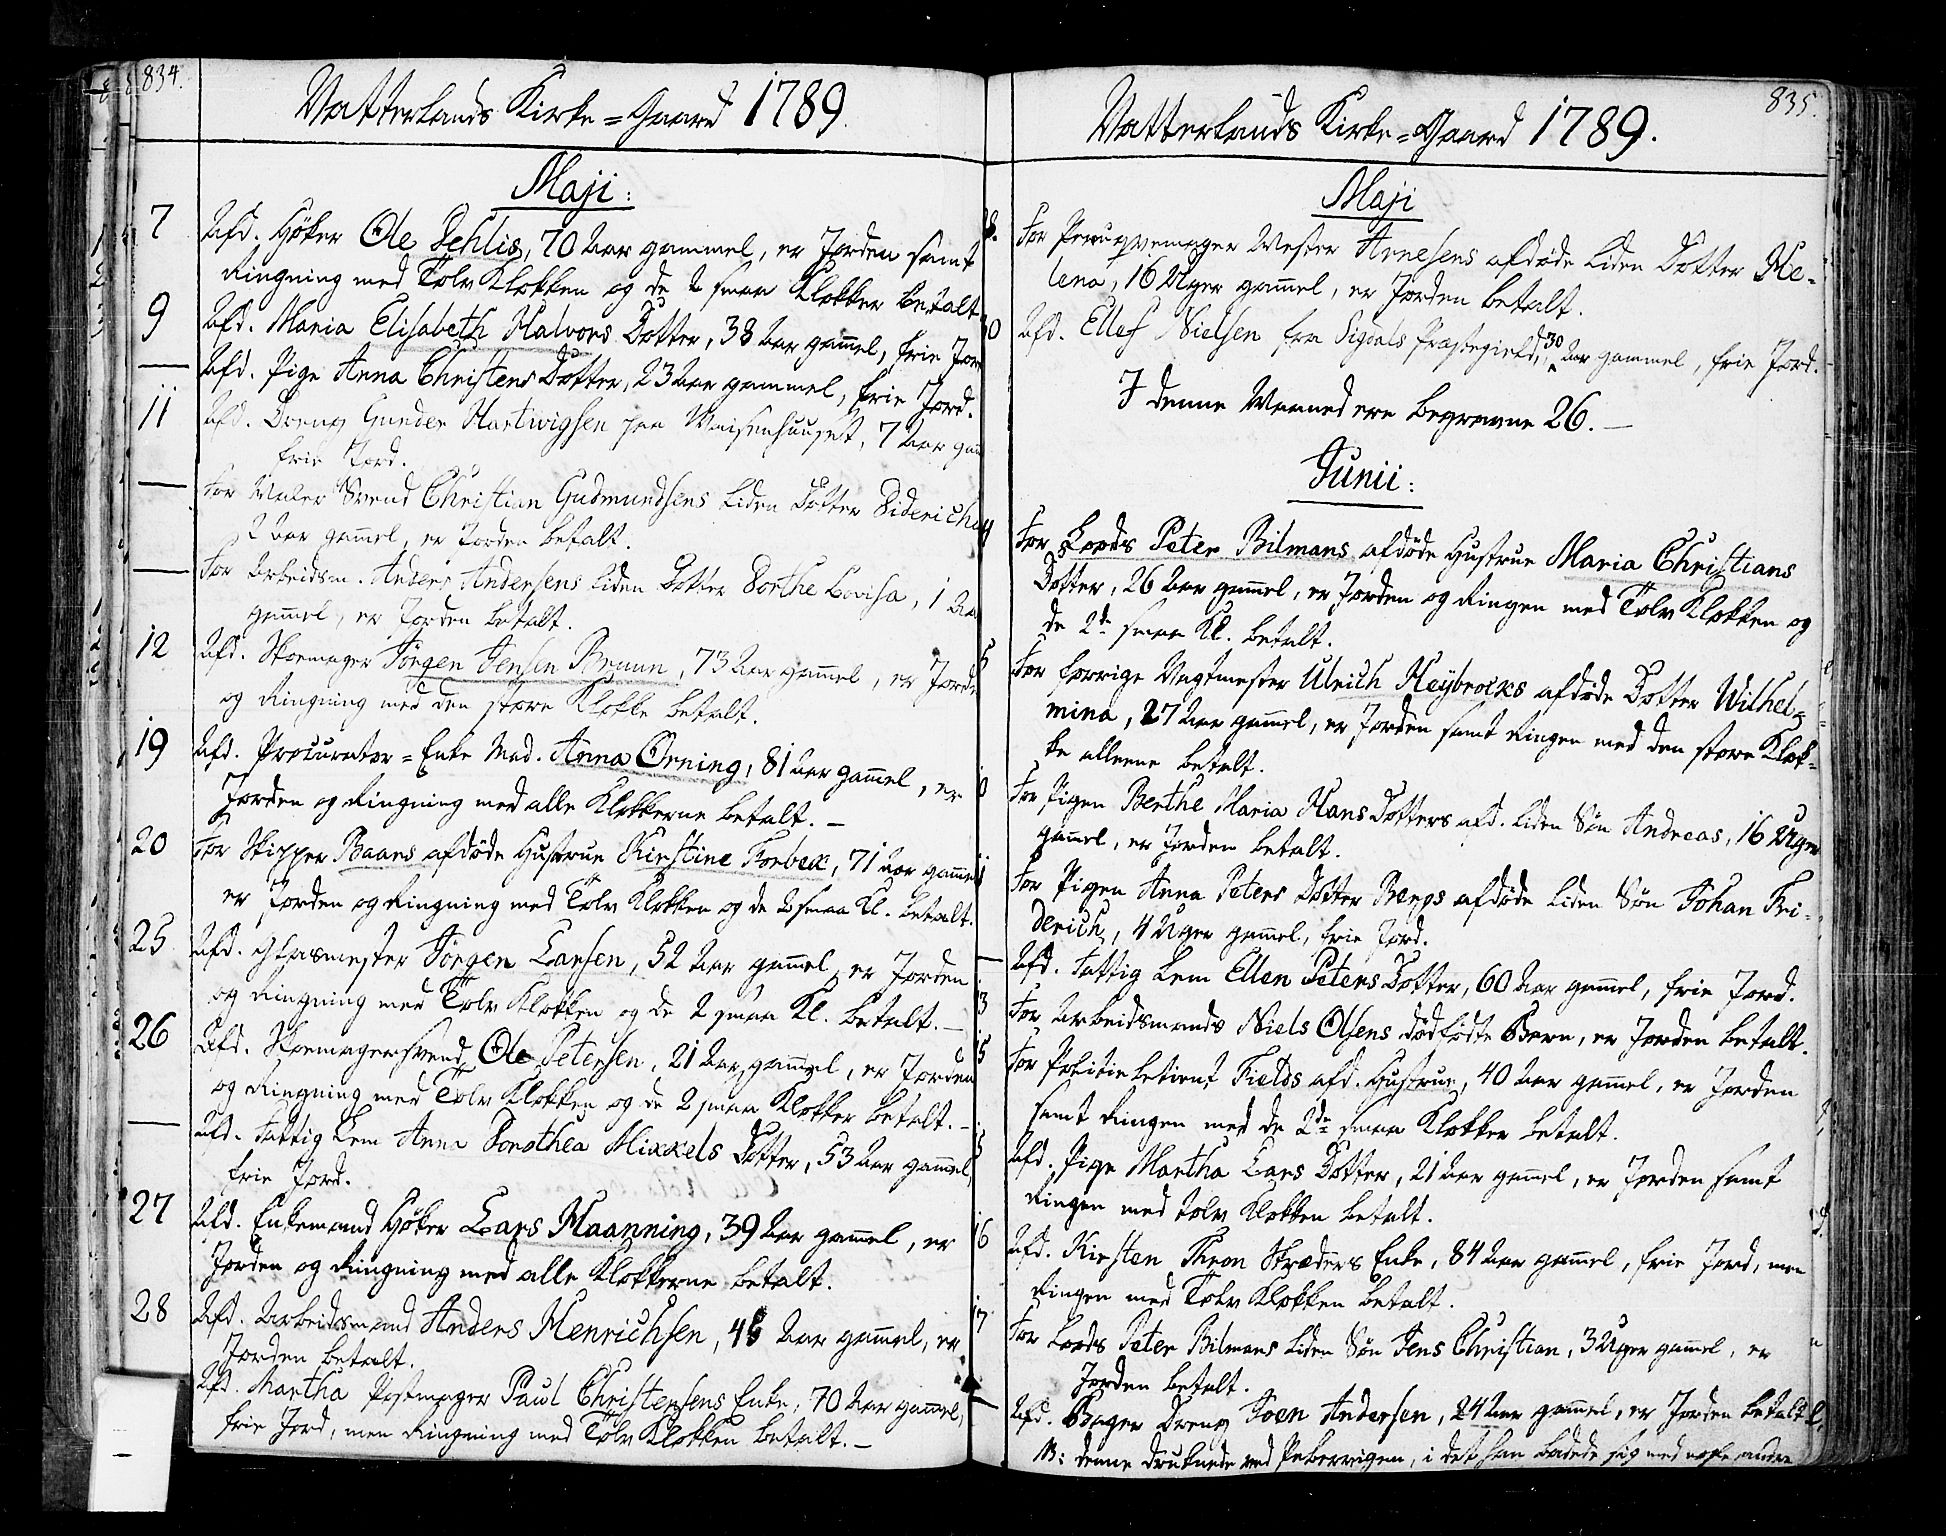 834.
Vatterlands Kirke=Gaard 1789.
Maji:
7 Afd. Höker Ole Dehlis, 70 Aar gammel, er Jorden samt
Ringning med Tolv Klokken og de 2 smaa Klokker betalt
9 Afd. Maria Elisabeth Halvors Dotter, 38 Aar gam̄el, frie Jor
— Afd. Pige Anna Christens Dotter, 23 Aar gammel, frie Jord.
11 Afd. Dreng Gunder Hartwigsen paa Waisenhuuset, 7 Aar gam
frie Jord.
— For Maler Svend Christian Gudmundsens liden Dotter Diderich
2 Aar gam̄el, er Jorden betalt.
— For Arbeidsm. Anders Andersens liden Dotter Dorthe Lovisa, 1 Aa
gam̄el, er Jorden betalt.
12 Afd. Skoemager Jörgen Jensen Bruun, 73 Aar gam̄el, er Jorde
og Ringning med den store Klokke betalt.
19 Afd. Procurator=Enke Mad. Anna Örning, 81 Aar gam̄el, er
Jorden og Ringning med alle Klokkerne betalt. —
20 For Skipper Baars afdöde Hustrue Kirstine Forbech, 71 Aar gamme
er Jorden og Ringning med Tolv Klokken og de 2 smaa Kl. betalt.
25 Afd. Glasmester Jörgen Larsen, 52 Aar gam̄el, er Jorden
og Ringning med Tolv Klokken og de 2 smaa Kl. betalt. —
26 Afd. Skoemagersvend Ole Petersen, 21 Aar gam̄el, er Jorden
og Ringning med Tolv Klokken og de 2 smaa Klokker betalt. —
— Afd. Fattig Lem Anna Dorothea Mikkels Dotter, 53 Aar gam̄el,
frie Jord.
27 Afd. Enkemand Höker Lars Maanning, 39 Aar gam̄el, er
Jorden og Ringning med alle Klokkerne betalt.
28 Afd. Arbeidsmand Anders Henrichsen, 48 Aar gam̄el, er
Jorden betalt.
Afd. Martha Postmager Paul Christensens Enke, 70 Aar gam̄el,
frie Jord, men Ringning med Tolv Klokken betalt. —
835.
Vatterlands Kirke=Gaard 1789.
Maji
For Peruqvemager Wester Arnesens afdöde liden Dotter He-
lena, 16 Uger gam̄el, er Jorden betalt.
30 Afd. Ellef Nielsen fra Sigdals Præstegield, 30 Aar gammel, frie Jord.
I denne Maaned ere begravne 26. —
Junii:
For Lods Peter Bilmans afdöde Hustrue Maria Christians
Dotter, 26 Aar gam̄el, er Jorden og Ringen med Tolv Klokken og
de 2de smaa Kl. betalt.
5 For forrige Vagtmester Ulrich Heybrocks afdöde Dotter Wilhel=
mina, 27 Aar gam̄el, er Jorden samt Ringen med den store Klok-
ke alleene betalt.
For Pigen Berthe Maria Hans Dotters afd. liden Sön Andreas, 16 Uger
gam̄el, er Jorden betalt.
For Pigen Anna Peters Dotter Bergs afdöde liden Sön Johan Fri-
derich, 4 Uger gam̄el, frie Jord.
— Afd. Fattig Lem Ellen Peters Dotter, 60 Aar gam̄el, frie Jord.
13 For Arbeidsmands Niels Olsens dödfödte Barn, er Jorden betalt.
15 For Politie betient Fields afd. Hustrue, 40 Aar gam̄el, er Jorden
samt Ringen med de 2de smaa Klokker betalt.
Afd. Pige Martha Lars Dotter, 21 Aar gam̄el, er Jorden samt
Ringen med tolv Klokken betalt.
16 Afd. Kirsten Thron Skræders Enke, 84 Aar gam̄el, frie Jord, men
Ringen med Tolv Klokken betalt.
17 For Lods Peter Bilmans liden Sön Jens Christian, 3 Uger gam̄el, er
Jorden betalt.
— Afd. Bager Dreng Joen Andersen, 24 Aar gam̄el, er Jorden betalt
NB: denne druknede ved Pebervigen, i det han badede sig med andre